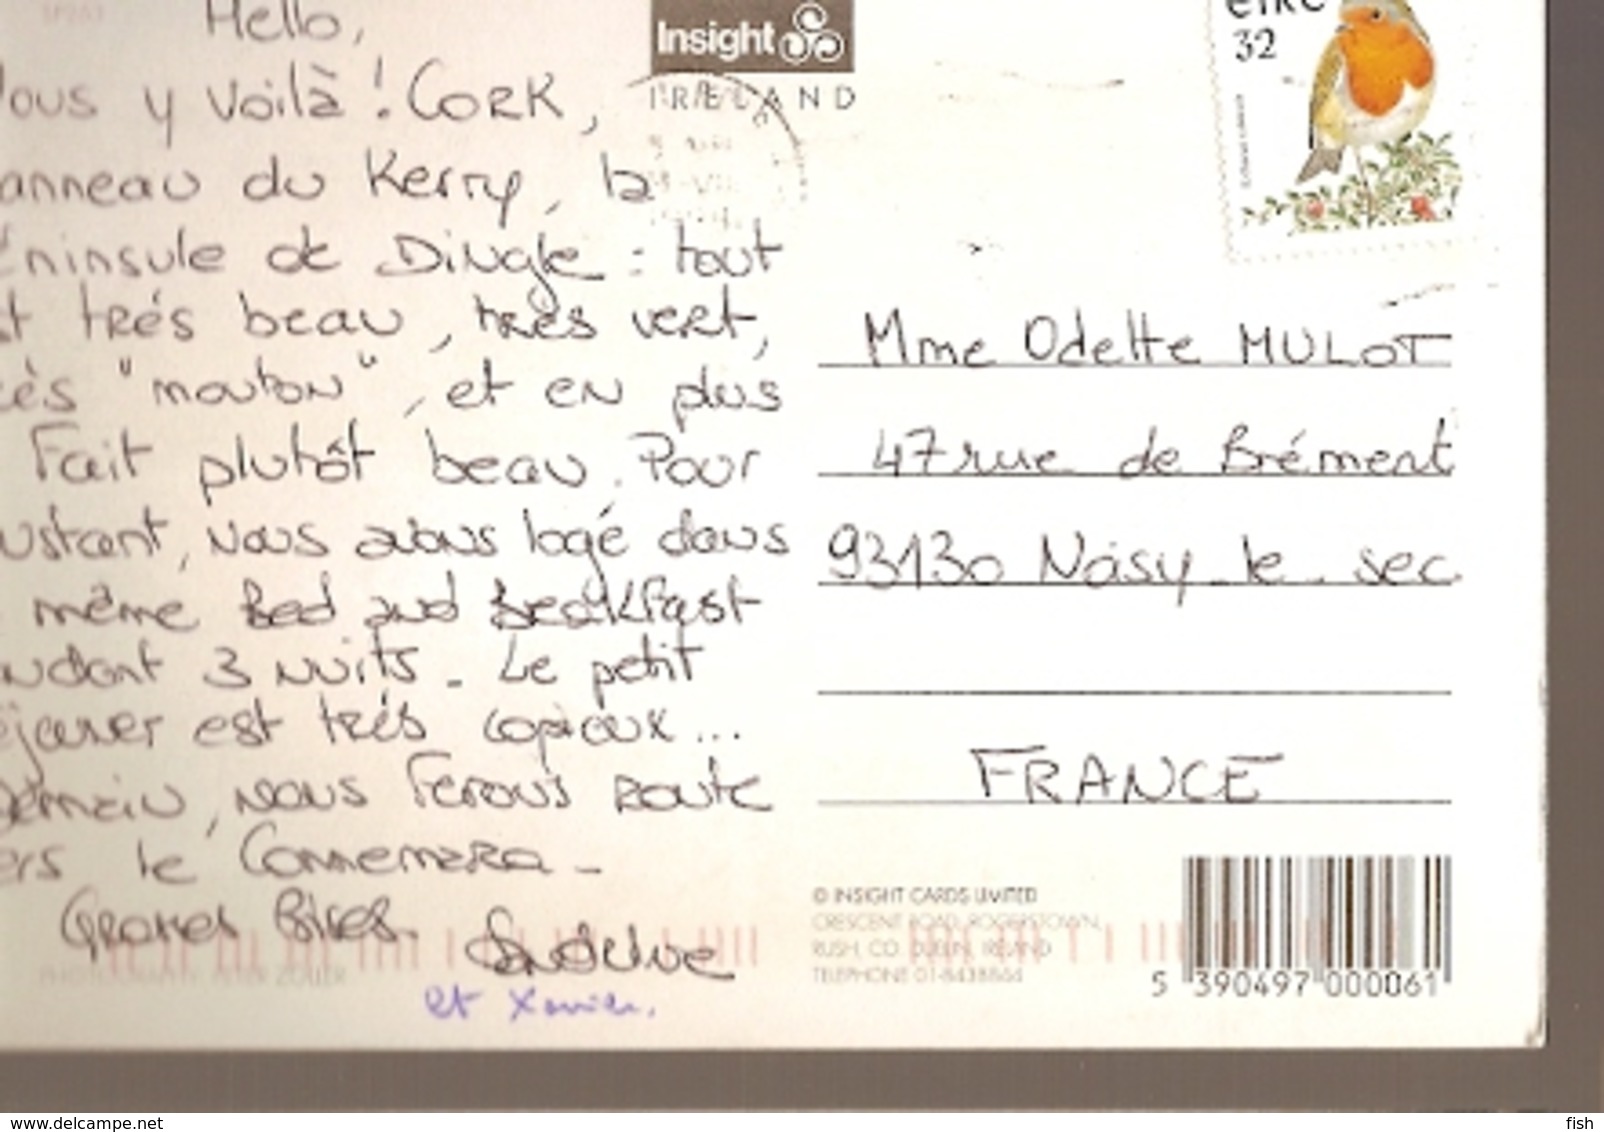 Hello,
ous y voilà ! CORK,
anneau du Kerry, la
éninsule de Dingle : tout
st trés beau, très vert,
rès "mouton", et en plus
Fait plutôt beau. Pour
nstant, nous avons logé dans
même Bed and Breakfast
endant 3 nuits. Le petit
éjeuner est trés copieux...
Demain, nous Ferons route
ers le Connemara -
Grosses Bises.
Sandrine
et Xavier.
Insight
IRELAND
éire
32
Mme Odette MULOT
47 rue de Brément
93130 Noisy-le-sec
FRANCE
© INSIGHT CARDS LIMITED
CRESCENT ROAD, ROGERSTOWN,
RUSH, CO. DUBLIN, IRELAND
TELEPHONE 01-8438864
PHOTOGRAPHY: PETER ZOLLER
5 390497 000061
delcampe.net
fish